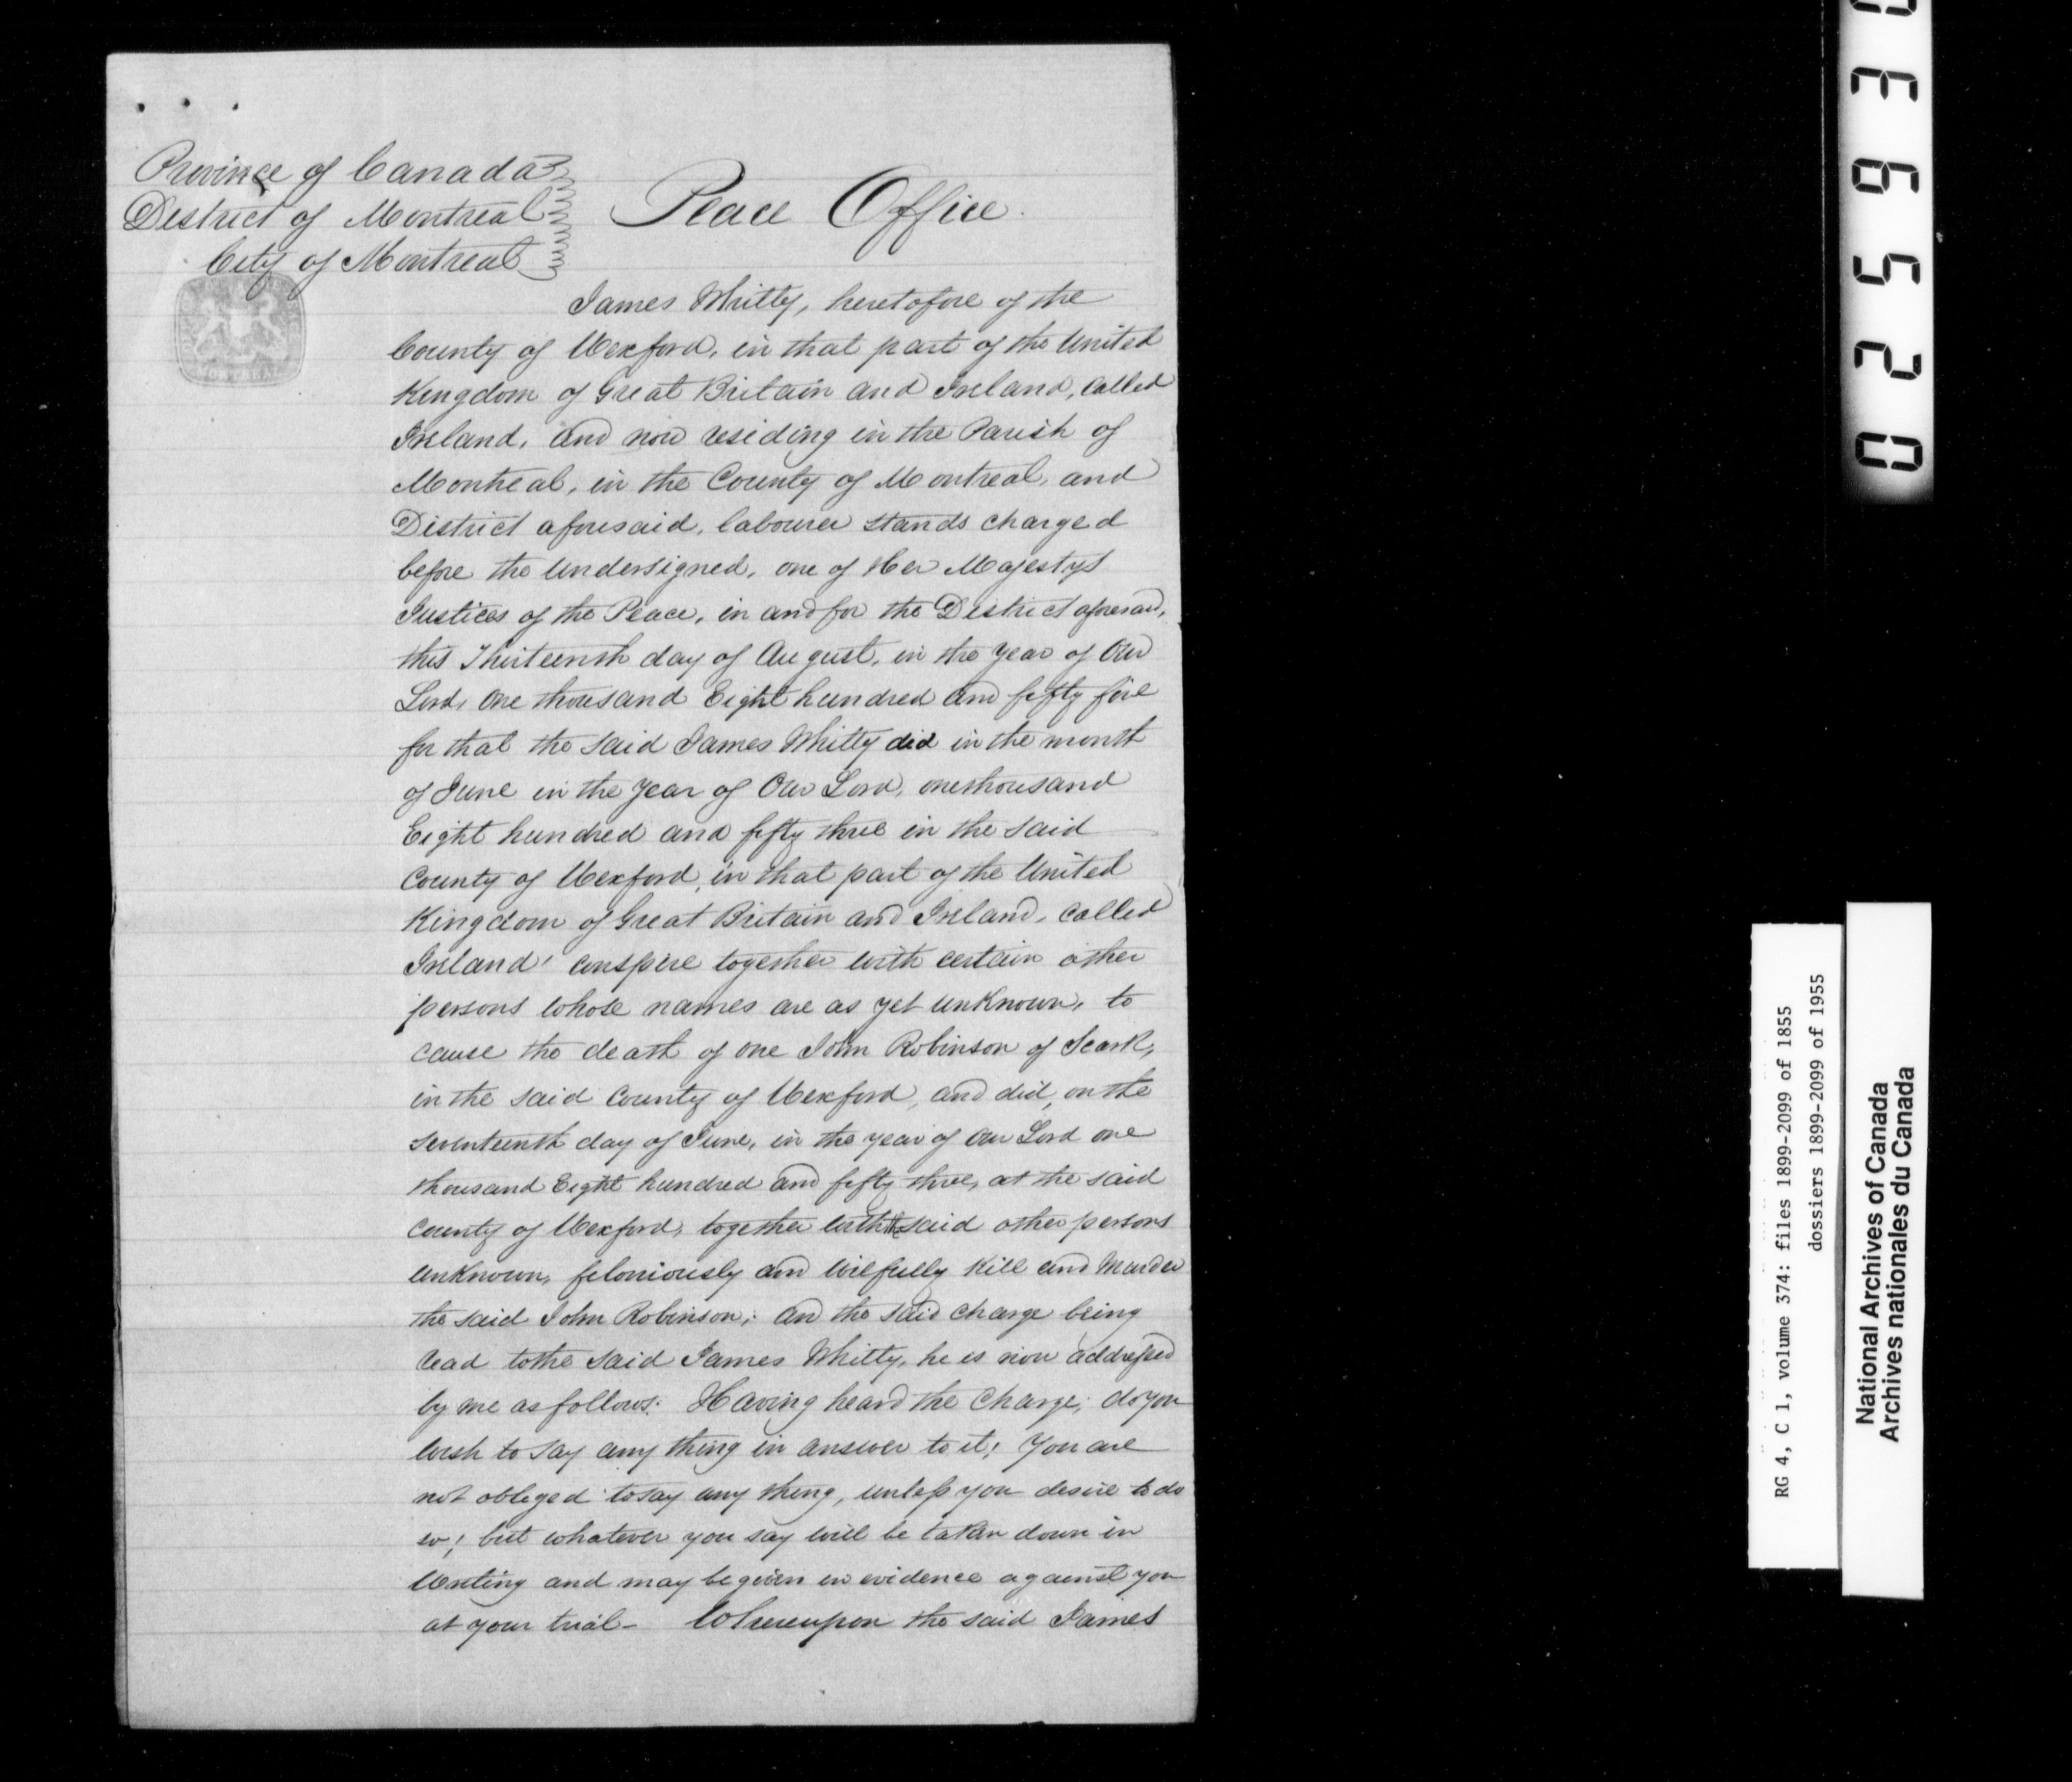 Province of Canada
District of Montreal
City of Montreal
Peace Office.
James Whitty, heretofore of the
County of Wexford, in that part of the United
Kingdom of Great Britain and Ireland, called
Ireland, and now residing in the Parish of
Montreal, in the County of Montreal, and
District aforesaid, labourer stands charged
before the undersigned, one of Her Majestys
Justices of the Peace, in and for the District aforesaid,
this Thirteenth day of August, in the year of Our
Lord, one thousand Eight hundred and fifty five
for that the said James Whitty did in the month
of June in the Year of Our Lord, one thousand
Eight hundred and fifty three in the said
County of Wexford, in that part of the United
Kingdom of Great Britain and Ireland, called
Ireland, conspire together with certain other
persons whose names are as yet unknown, to
cause the death of one John Robinson of Scark,
in the said County of Wexford, and did, on the
seventeenth day of June, in the year of our Lord one
thousand Eight hundred and fifty three, at the said
County of Wexford, together with the said other persons
unknown, feloniously and wilfully kill and Murder
the said John Robinson; and the said charge being
read to the said James Whitty, he is now addressed
by me as follows: Having heard the Charge, do you
wish to say any thing in answer to it; You are
not obliged to say any thing, unless you desire to do
so; but whatever you say will be taken down in
Writing and may be given in evidence against you
at your trial- Whereupon the said James
MONTREAL
025930
RG 4, C 1, volume 374: files 1899-2099 of 1855
dossiers 1899-2099 of 1955
National Archives of Canada
Archives nationales du Canada